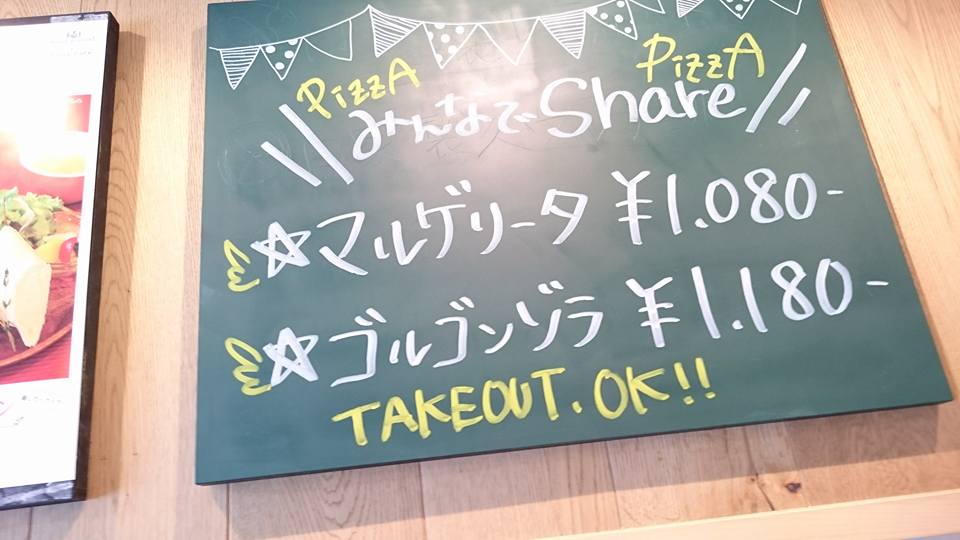 PizzA PizzA
みんなでShare
☆マルゲリータ ¥1.080-
☆ゴルゴンゾラ ¥1.180-
TAKEOUT.OK!!